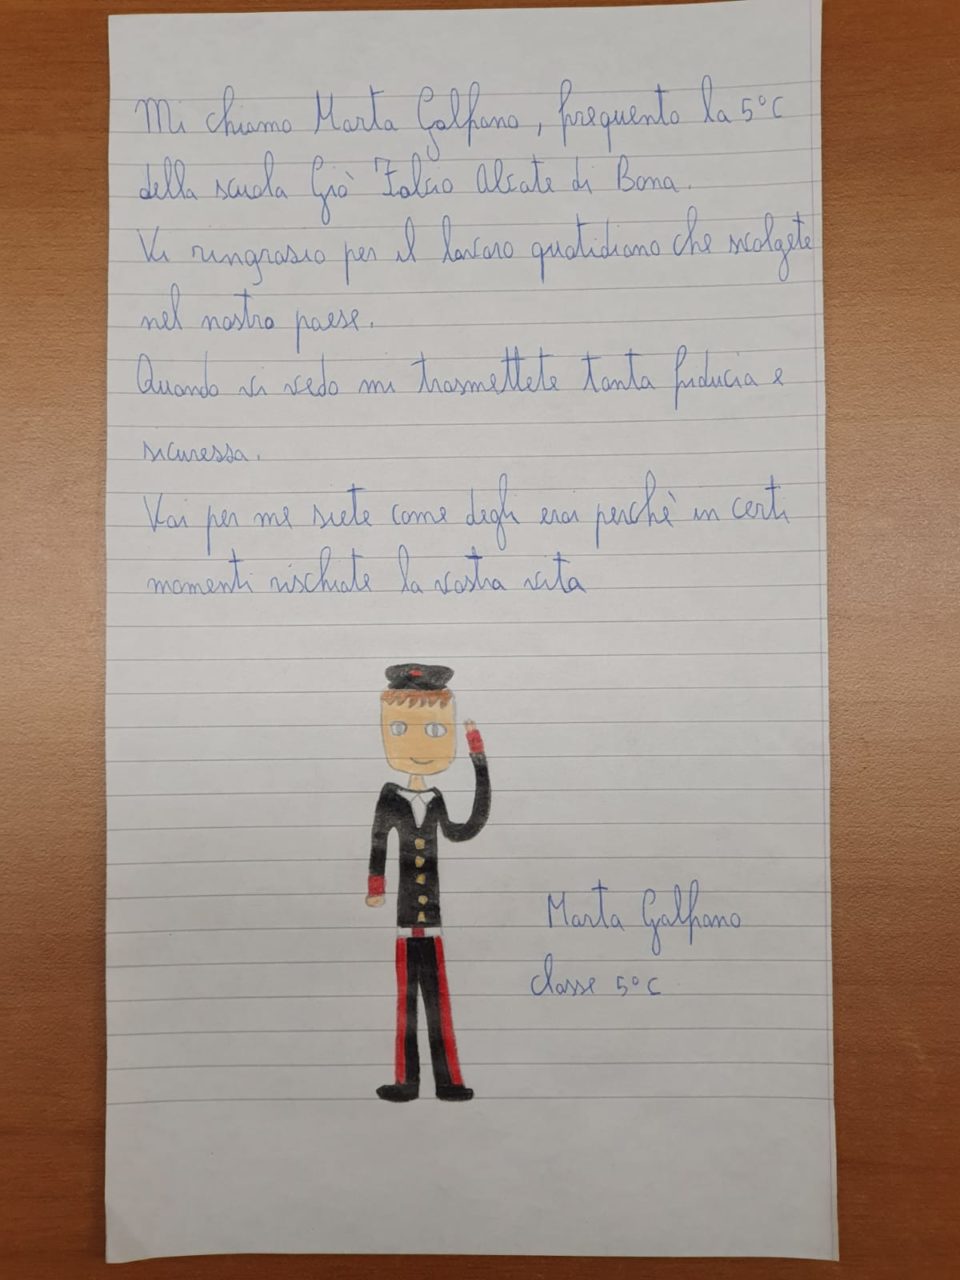 Mi chiamo Marta Galfano, frequento la 5°C
della scuola Giò Falcio Alcate di Bona.
Vi ringrazio per il lavoro quotidiano che svolgete
nel nostro paese.
Quando vi vedo mi trasmettete tanta fiducia e
sicurezza.
Voi per me siete come degli eroi perchè in certi
momenti rischiate la vostra vita
Marta Galfano
classe 5°C